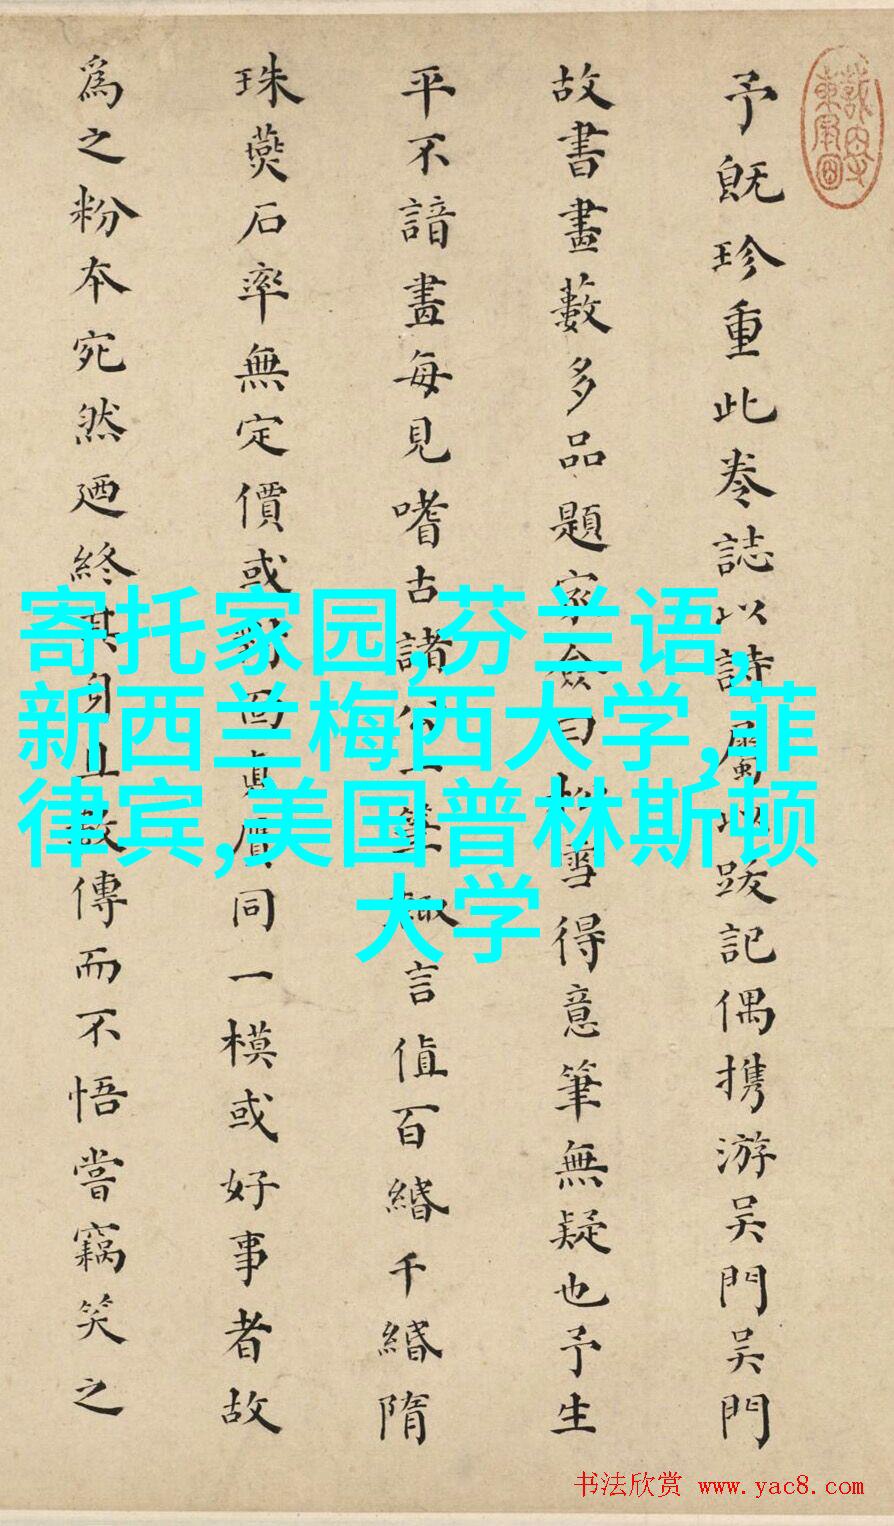 予既珍重此卷誌以詩屬以跋記偶携游吴門吴門
故書畫藪多品題家僉曰松雪得意筆無疑也予生
平不諳畫每見嗜古諸公一筆言值百緡千緡隋
珠燕石率無定價或真贋同一模或好事者故
為之粉本宛然廼終其身且數傳而不悟嘗竊笑之
寄托家园,芬兰语,
新西兰梅西大学,菲
律宾,美国普林斯顿
大学
书法欣赏 www.yac8.com